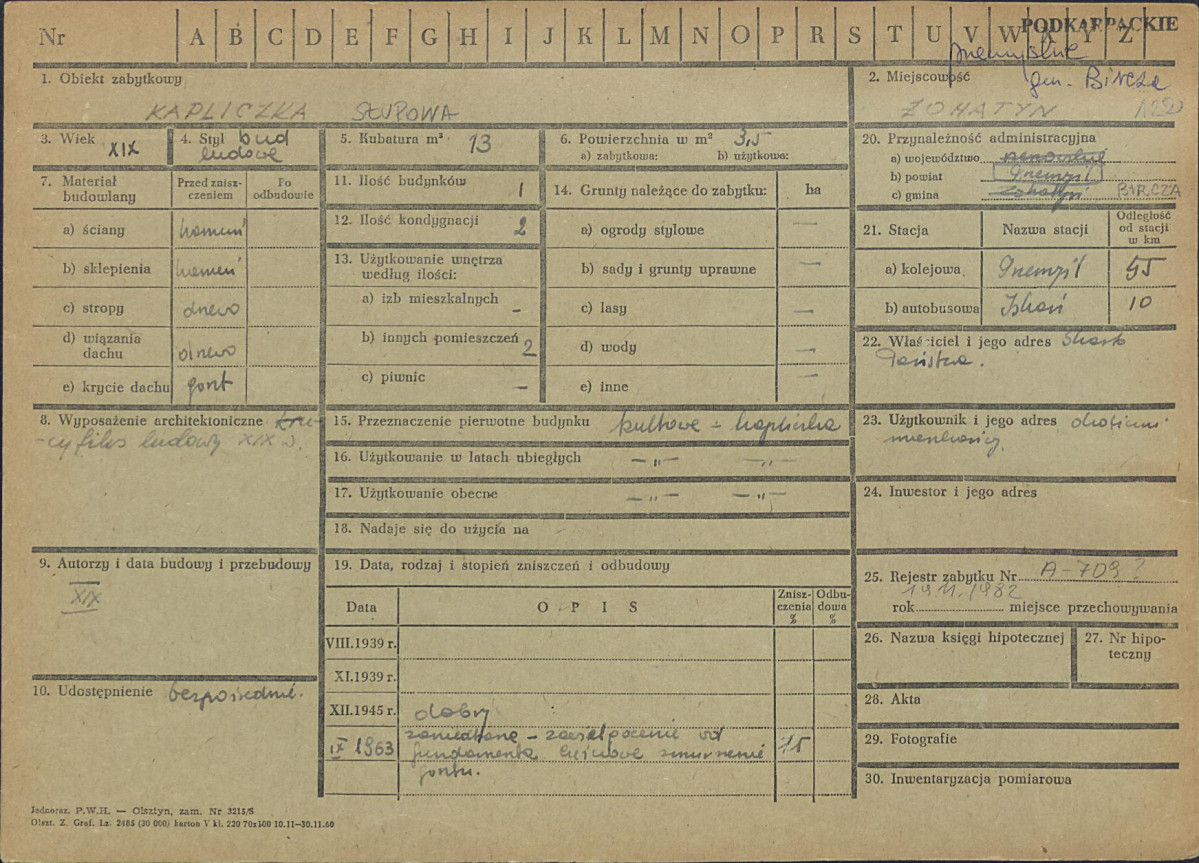 Nr A B C D E F G H I J K L M N O P R S T U V W X Y Z
PODKARPACKIE
przemyskie
gm. BIRCZA
1. Obiekt zabytkowy
KAPLICZKA SŁUPOWA
2. Miejscowość
ŻOHATYN
3. Wiek XIX
4. Styl bud
ludowe
5. Kubatura m³ 13
6. Powierzchnia w m² 3,5
a) zabytkowa: b) użytkowa:
20. Przynależność administracyjna
a) województwo
b) powiat Przemyśl
c) gmina Żohatyń BIRCZA
7. Materiał budowlany
Przed zniszczeniem
Po odbudowie
a) ściany kamień
b) sklepienia kamień
c) stropy drewo
d) wiązania dachu drewo
e) krycie dachu gont
11. Ilość budynków 1
12. Ilość kondygnacji 2
13. Użytkowanie wnętrza
według ilości:
a) izb mieszkalnych –
b) innych pomieszczeń 2
c) piwnic –
14. Grunty należące do zabytku: ha
a) ogrody stylowe —
b) sady i grunty uprawne —
c) lasy —
d) wody —
e) inne —
21. Stacja
Nazwa stacji
Odległość
od stacji
w km
a) kolejowa Przemyśl 55
b) autobusowa Iskań 10
22. Właściciel i jego adres Skarb
Państwa.
8. Wyposażenie architektoniczne kru-
cyfiks ludowy XIX w.
15. Przeznaczenie pierwotne budynku kultowe – kapliczka
16. Użytkowanie w latach ubiegłych —„— —„—
17. Użytkowanie obecne —„— —„—
18. Nadaje się do użycia na
23. Użytkownik i jego adres okoliczni
mieszkańcy.
24. Inwestor i jego adres
9. Autorzy i data budowy i przebudowy
XIX
19. Data, rodzaj i stopień zniszczeń i odbudowy
Data
O P I S
Zniszczenia %
Odbudowa %
VIII.1939 r.
XI.1939 r.
XII.1945 r. dobry
IX 1963 zaniedbane – zaeskpocenie od 15
fundamenta częściowe zmurszenie
gontu.
10. Udostępnienie bezpośrednie.
25. Rejestr zabytku Nr A-709?
19.11.1982
rok miejsce przechowywania
26. Nazwa księgi hipotecznej
27. Nr hipo-
teczny
28. Akta
29. Fotografie
30. Inwentaryzacja pomiarowa
Jednoraz. P.W.H. — Olsztyn, zam. Nr 3215/S
Olszt. Z. Graf. Lz. 2485 (30 000) karton V kl. 220 70x100 10.11—30.11.60